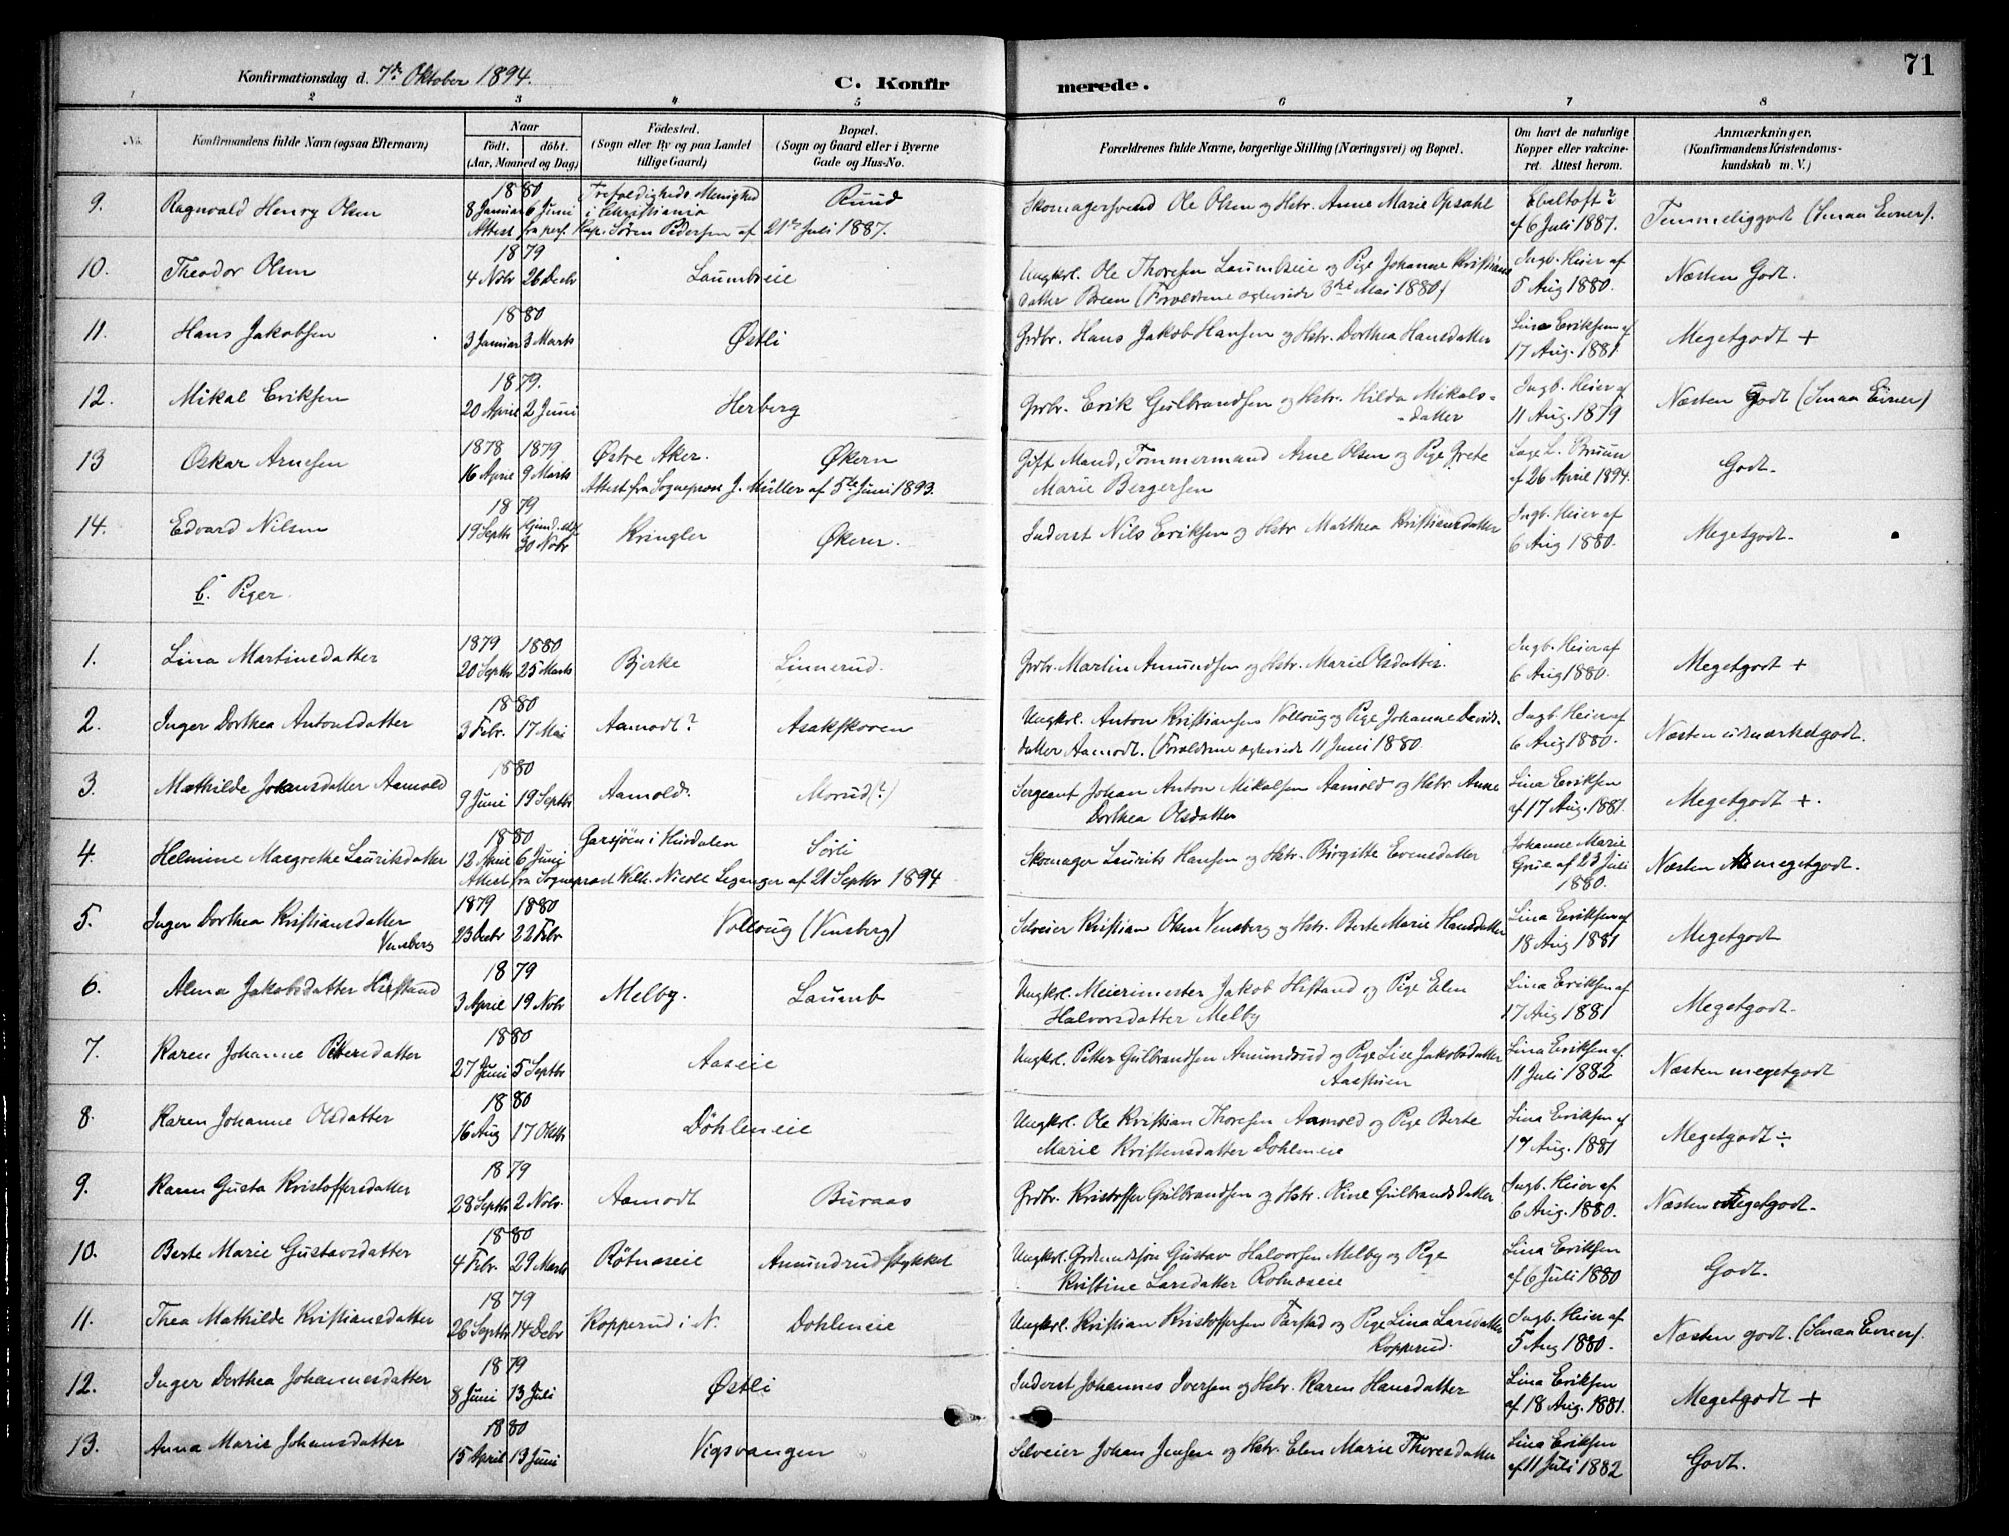 Konfirmationsdag d. 7de Oktober 1894.
C. Konfirmerede.
71
1 2 3 4 5 6 7 8
No. Konfirmandens fulde Navn (ogsaa Efternavn)
Naar
Født. døbt.
(Aar, Maaned og Dag)
Fødested.
(Sogn eller By og paa Landet
tillige Gaard)
Bopæl.
(Sogn og Gaard eller i Byerne
Gade og Hus-No.
Forældrenes fulde Navne, borgerlige Stilling (Næringsvei) og Bopæl.
Om havt de naturlige
Kopper eller vakcine-
ret. Attest herom.
Anmærkninger.
(Konfirmandens Kristendoms-
kundskab m. V.)
9. Ragnvald Henry Olsen
1880
8 Januar 6 Juni
Trefoldigheds Menighed
i Christiania
Ruud
Attest fra pers. Kap. Søren Pedersen af 21de Juli 1887.
Skomagersvend Ole Olsen og Hstr. Anne Marie Opsahl
Ebeltoft?
af 6 Juli 1887.
Temmeliggodt (Smaa Evner).
10. Theodor Olsen
1879
4 Nobr 26 Decbr
Laumbseie
Ungkrl. Ole Thoresen Laumbseie og Pige Johanne Kristians
datter Breen (Forældrene ægteviede 3die Mai 1880)
Ingb. Heier af
5 Aug 1880.
Næsten Godt.
11. Hans Jakobsen
1880
3 Januar 3 Marts
Østli
Grdbr. Hans Jakob Hansen og Hstr. Dorthea Hansdatter
Lina Eriksen af
17 Aug. 1881
Megetgodt +
12. Mikal Eriksen
1879.
20 April 2 Juni
Herberg
Grdbr. Erik Gulbrandsen og Hstr. Hilda Mikals-
-datter
Ingb. Heier af
11 Aug. 1879
Næsten Godt (Smaa Evner)
13 Oskar Arnesen
1878 1879
16 April 9 Marts
Østre Aker.
Økern
Attest fra Sogneprest J. Müller af 5te Juni 1893.
Gift Mand, Tømmermand Arne Olsen og Pige Grete
Marie Bergersen
Læge L. Bruun
af 26 April 1894.
Godt.
14. Edvard Nilsen
1879
19 Septbr 30 Nobr
Kringler
Økern.
Inderst Nils Eriksen og Hstr Marthea Kristiansdatter
Ingb. Heier af
6 Aug 1880.
Megetgodt.
b. Piger.
1. Lina Martinsdatter
1879 1880
20 Septbr 25 Marts
Bjerke
Linnerud.
Grdbr. Martin Amundsen og Hstr. Marie Olsdatter.
Ingb. Heier af
6 Aug 1880.
Megetgodt +
2. Inger Dorthea Antonsdatter
1880
3 Febr. 17 Mai
Aamodt?
Asakskoven
Ungkrl. Anton Kristiansen Volloug og Pige Johanne Davids-
datter Aamodt. (Forældrene ægteviede 11 Juni 1880
Ingb. Heier af
6 Aug 1880.
Næsten udmærketgodt.
3. Mathilde Johansdatter Aamold
1880
9 Juni 19 Septbr
Aamold.
Morud(?)
Sergeant Johan Anton Mikalsen Aamold og Hstr. Anne
Dorthea Olsdatter
Lina Eriksen
af 17 Aug. 1881.
Megetgodt +.
4. Helmine Margrethe Lauritsdatter
1880
12 April 6 Juni
Garsjøen i Hurdalen
Sørli
Attest fra Sogneprest Vilh. Nicoll Leganger af 21 Septbr 1894
Skomager Laurits Hansen og Hstr. Birgitte Evensdatter
Johanne Marie
Grue af 23 Juli
1880.
Næsten megetgodt.
5. Inger Dorthea Kristiansdatter
Vensberg
1879 1880
23 Decbr 22 Febr
Volloug (Vensberg)
Selveier Kristian Olsen Vensberg og Hstr. Berte Marie Hansdatter
Lina Eriksen af
18 Aug 1881
Megetgodt
6. Alma Jakobsdatter Hifstand
1879
3 April 19 Nobr
Melby.
Laumb
Ungkrl. Meierimester Jakob Hifstand og Pige Elen
Halvorsdatter Melby
Lina Eriksen af
17 Aug 1881
Megetgodt.
7. Karen Johanne Petersdatter
1880
27 Juni 5 Septbr
Aaseie
Ungkrl. Petter Gulbrandsen Amundrud og Pige Lise Jakobsdatter
Aasstuen
Lina Eriksen af.
11 Juli 1882
Næsten megetgodt
8. Karen Johanne Olsdatter
1880
16 Aug 17 Oktbr
Døhleneie
Ungkrl. Ole Kristian Thoresen Aamold og Pige Berte
Marie Kristensdatter Dohleneie
Lina Eriksen af
17 Aug. 1881
Megetgodt ÷
9. Karen Gusta Kristoffersdatter
1879
28 Septbr 2 Nobr.
Aamodt
Buraas
Grdbr. Kristoffer Gulbrandsen og Hstr. Oline Gulbrandsdatter
Ingb. Heier af
6 Aug. 1880.
Næsten Megetgodt.
10. Berte Marie Gustavsdatter
1880
4 Febr. 29 Marts
Røtnæseie
Amundrudstykket
Ungkrl. Grdmdssøn Gustav Halvorsen Melby og Pige
Kristine Larsdatter Rotnæseie
Lina Eriksen
af 6 Juli 1880
Godt.
11. Thea Mathilde Kristiansdatter
1879
26 Septbr 14 Decbr
Kopperud i N.
Dohleneie
Ungkrl. Kristian Kristoffersen Farstad og Pige Lina Larsdatter
Kopperud.
Ingb. Heier af
5 Aug 1880.
Næsten godt. (Smaa Evner).
12. Inger Dorthea Johannesdatter
1879
8 Juni 13 Juli
Østli
Inderst Johannes Iversen og Hstr. Karen Hansdatter
Lina Eriksen
af 18 Aug. 1881.
Megetgodt +
13. Anna Marie Johansdatter
1880
15 April 13 Juni
Vigsvangen
Selveier Johan Jensen og Hstr. Elen Marie Thoresdatter
Lina Eriksen
af 11 Juli 1882
Godt.